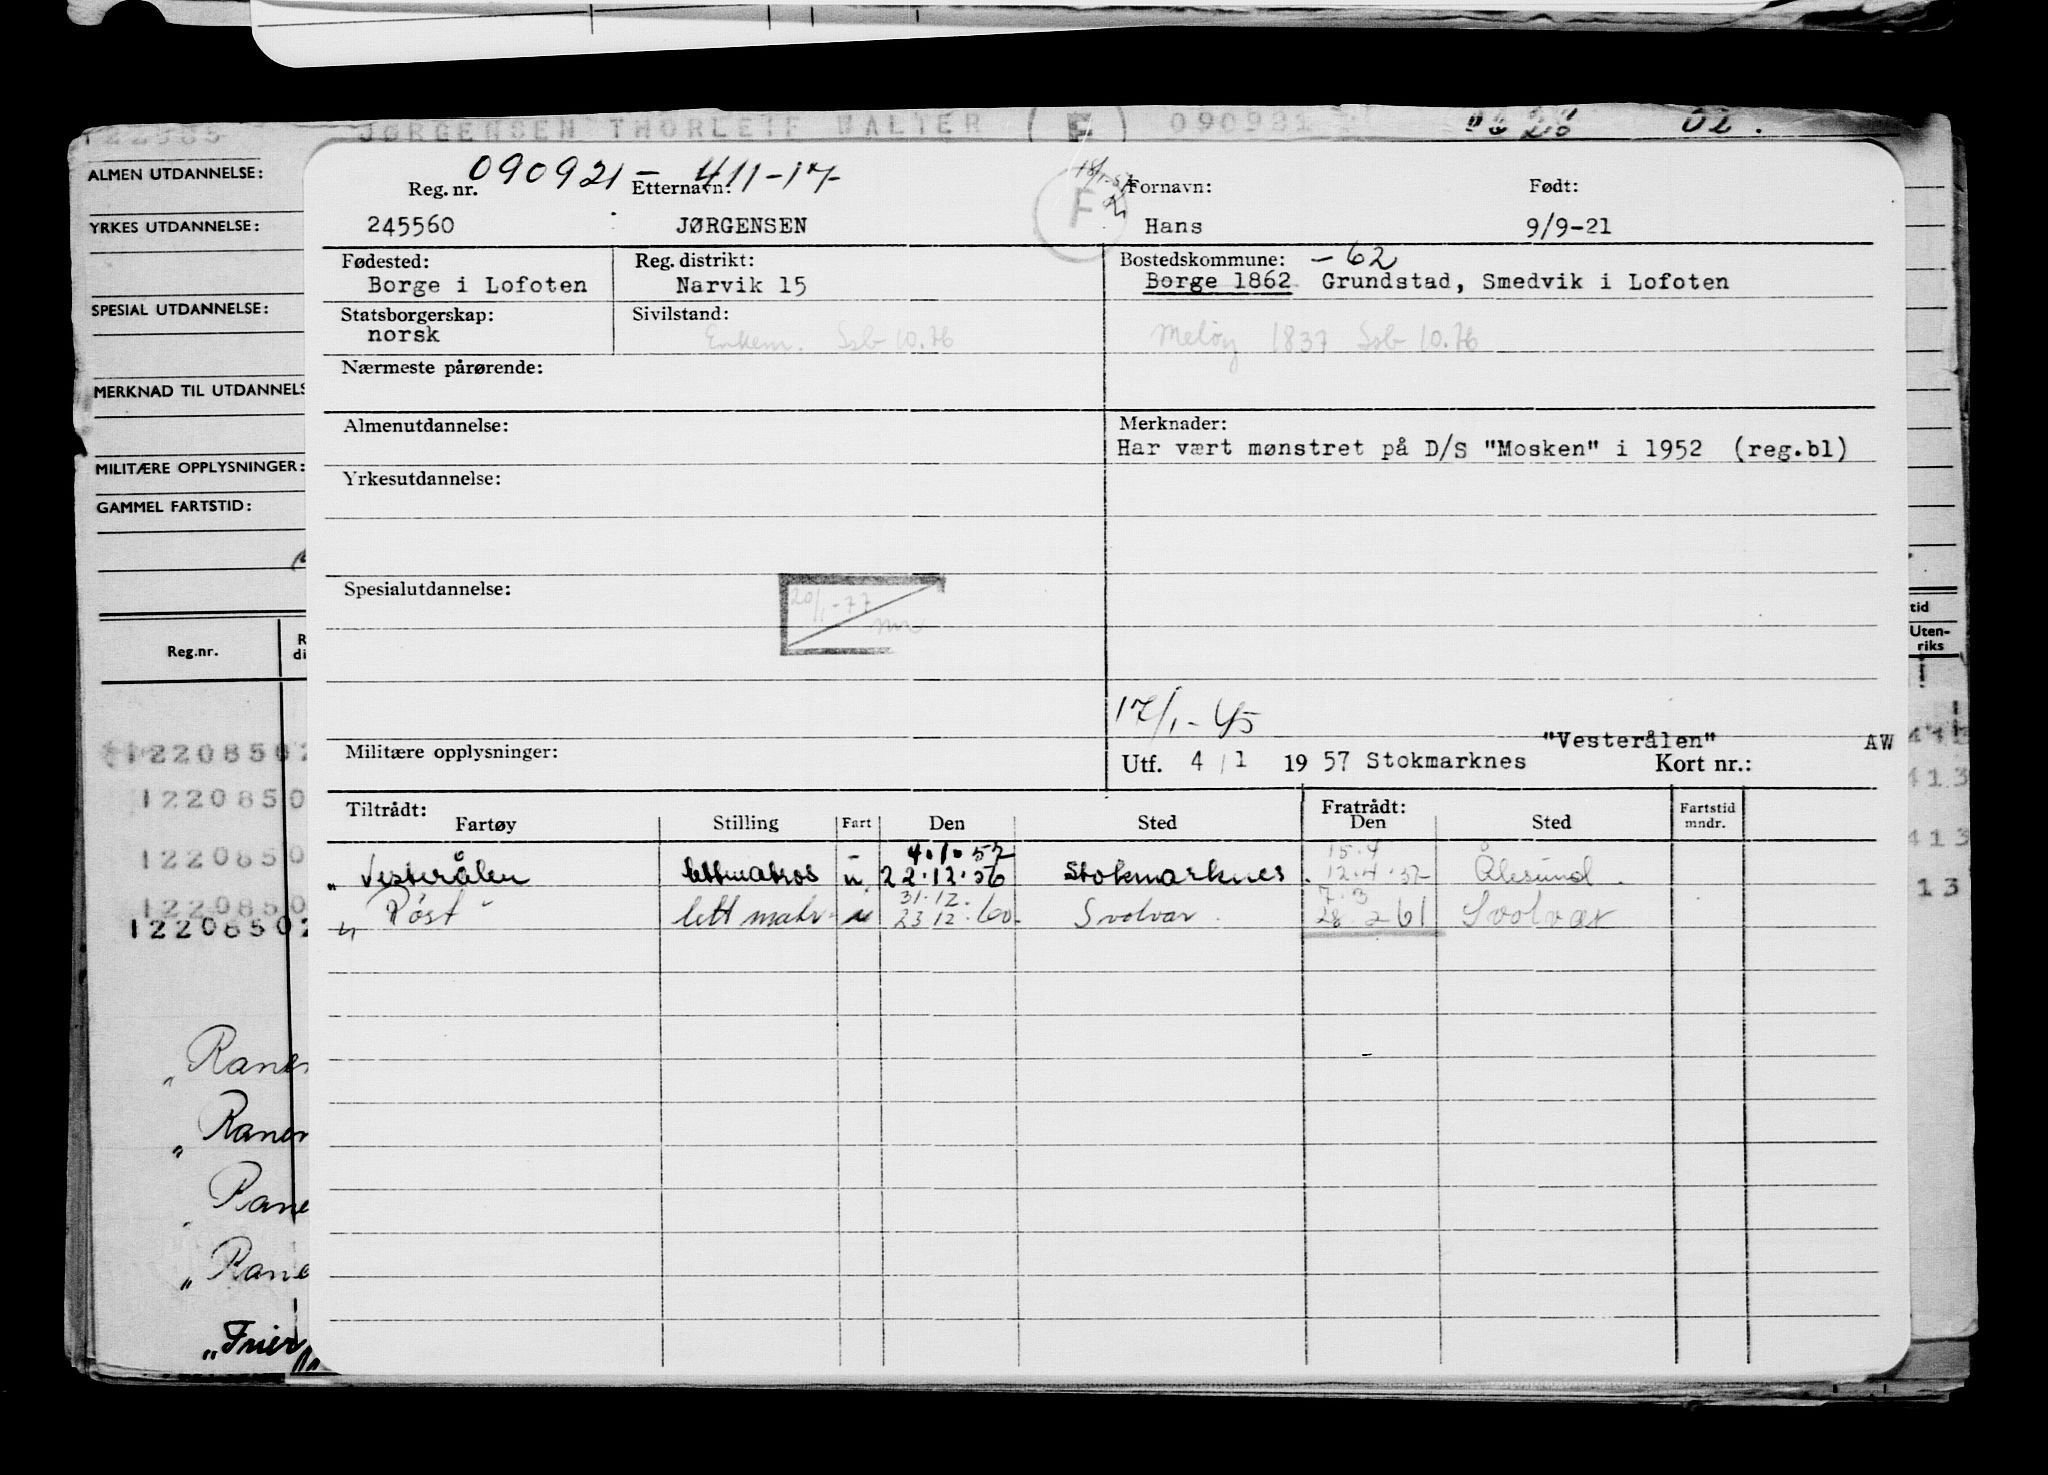 122085 JØRGENSEN THORLEIF WALTER (F) 090931
ALMEN UTDANNELSE:
YRKES UTDANNELSE:
SPESIAL UTDANNELSE:
MERKNAD TIL UTDANNELS
MILITÆRE OPPLYSNINGER:
GAMMEL FARTSTID:
Reg.nr.
12208502
1220850
1220850
1220850
12208502
"Raner
"Raner
Rane
"Rane
"Frier
tid
Uten-
riks
413
413
13
090921 - 411-17-
Reg. nr. Etternavn: Fornavn: Født:
245560 JØRGENSEN F Hans 9/9-21
Fødested: Reg. distrikt: Bostedskommune: -62
Borge i Lofoten Narvik 15 Borge 1862 Grundstad, Smedvik i Lofoten
Statsborgerskap: Sivilstand:
norsk Enkem. Ssb 10.76 Meløy 1837 Ssb 10.76
Nærmeste pårørende:
Almenutdannelse: Merknader:
Har vært mønstret på D/S "Mosken" i 1952 (reg.bl)
Yrkesutdannelse:
Spesialutdannelse:
20/1-77
17/1-45
Militære opplysninger: "Vesterålen" AW
Utf. 4/1 1957 Stokmarknes Kort nr.:
Tiltrådt: Fratrådt: Fartstid
Fartøy Stilling Fart Den Sted Den Sted mndr.
4.1.57 15.4
"Vesterålen lettmatros u 22.12.56 Stokmarknes 12.4.57 Ålesund
31.12. 7.3
" Røst " lett matr u 23.12.60 Svolvær 28.2 61 Svolvær